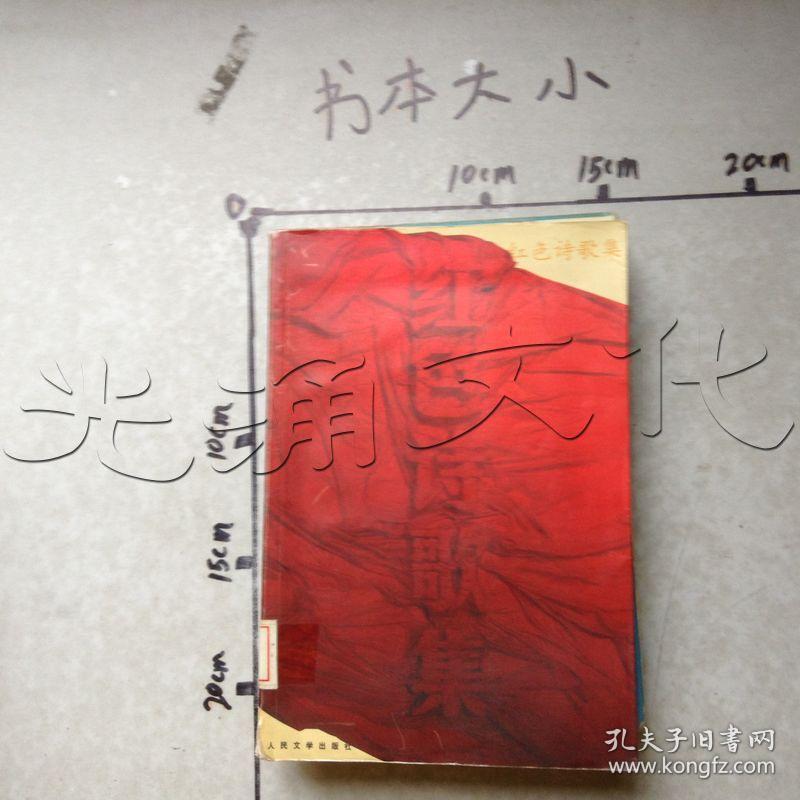 书本大小
10cm 15cm 20cm
0
红色诗歌集
红色诗歌集
光涌文化
10cm
15cm
20cm
人民文学出版社
孔夫子旧书网
www.kongfz.com